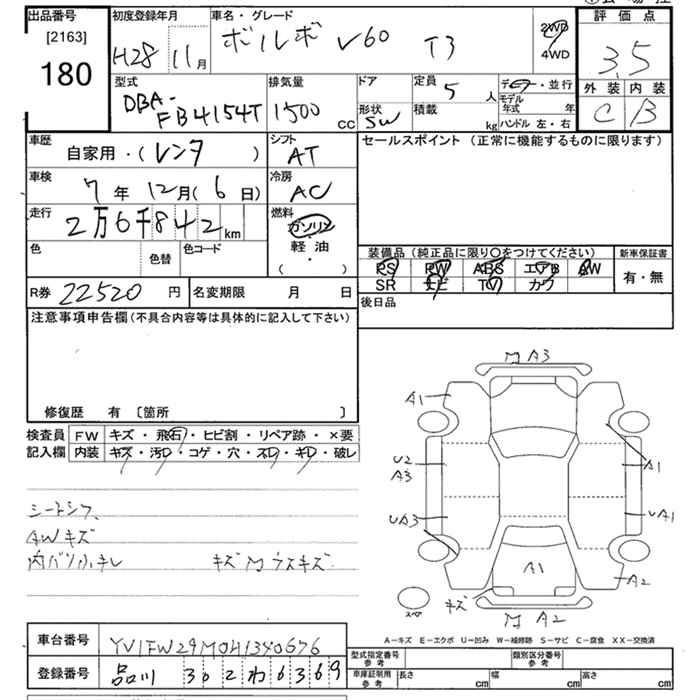 出品番号 初度登録年月 車名・グレード 評価点
[2163]
180 H28 11月 ボルボ V60 T3 2WD 4WD 3.5
型式 排気量 ドア 定員 5人 デーラー・並行 外装 内装
DBA-FB4154T 1500cc 形状 SW 積載 kg モデル年式 年 ハンドル 左・右 C B
車歴 自家用・(レンタ) シフト AT セールスポイント (正常に機能するものに限ります)
車検 7年 12月(6日) 冷房 AC
走行 2万6千842km 燃料 ガソリン
軽・油
色 色替 色コード ( ・ )
装備品 (純正品に限り〇をつけてください) 新車保証書
PS PW ABS エアB AW 有・無
SR ナビ TV カワ
R券 22520円 名変期限 月 日 後日品
注意事項申告欄 (不具合内容等は具体的に記入して下さい)
修復歴 有 〔箇所 〕
検査員 FW キズ・飛石・ヒビ割・リペア跡・×要
記入欄 内装 キズ・汚レ・コゲ・穴・スレ・キレ・破レ
シートシワ
AWキズ
内バリふキレ キズ M ウスキズ
M A3
A1
U2
A3
A1
UA3
UA1
A1
A2
キズ
スペア
M A2
A−キズ E−エクボ U−凹み W−補修跡 S−サビ C−腐食 XX−交換済
車台番号 YV1FW29M0H1340676 型式指定番号 参考 類別区分番号 参考
登録番号 品川 302わ6369 車庫証明用 参考 長さ cm 幅 cm 高さ cm